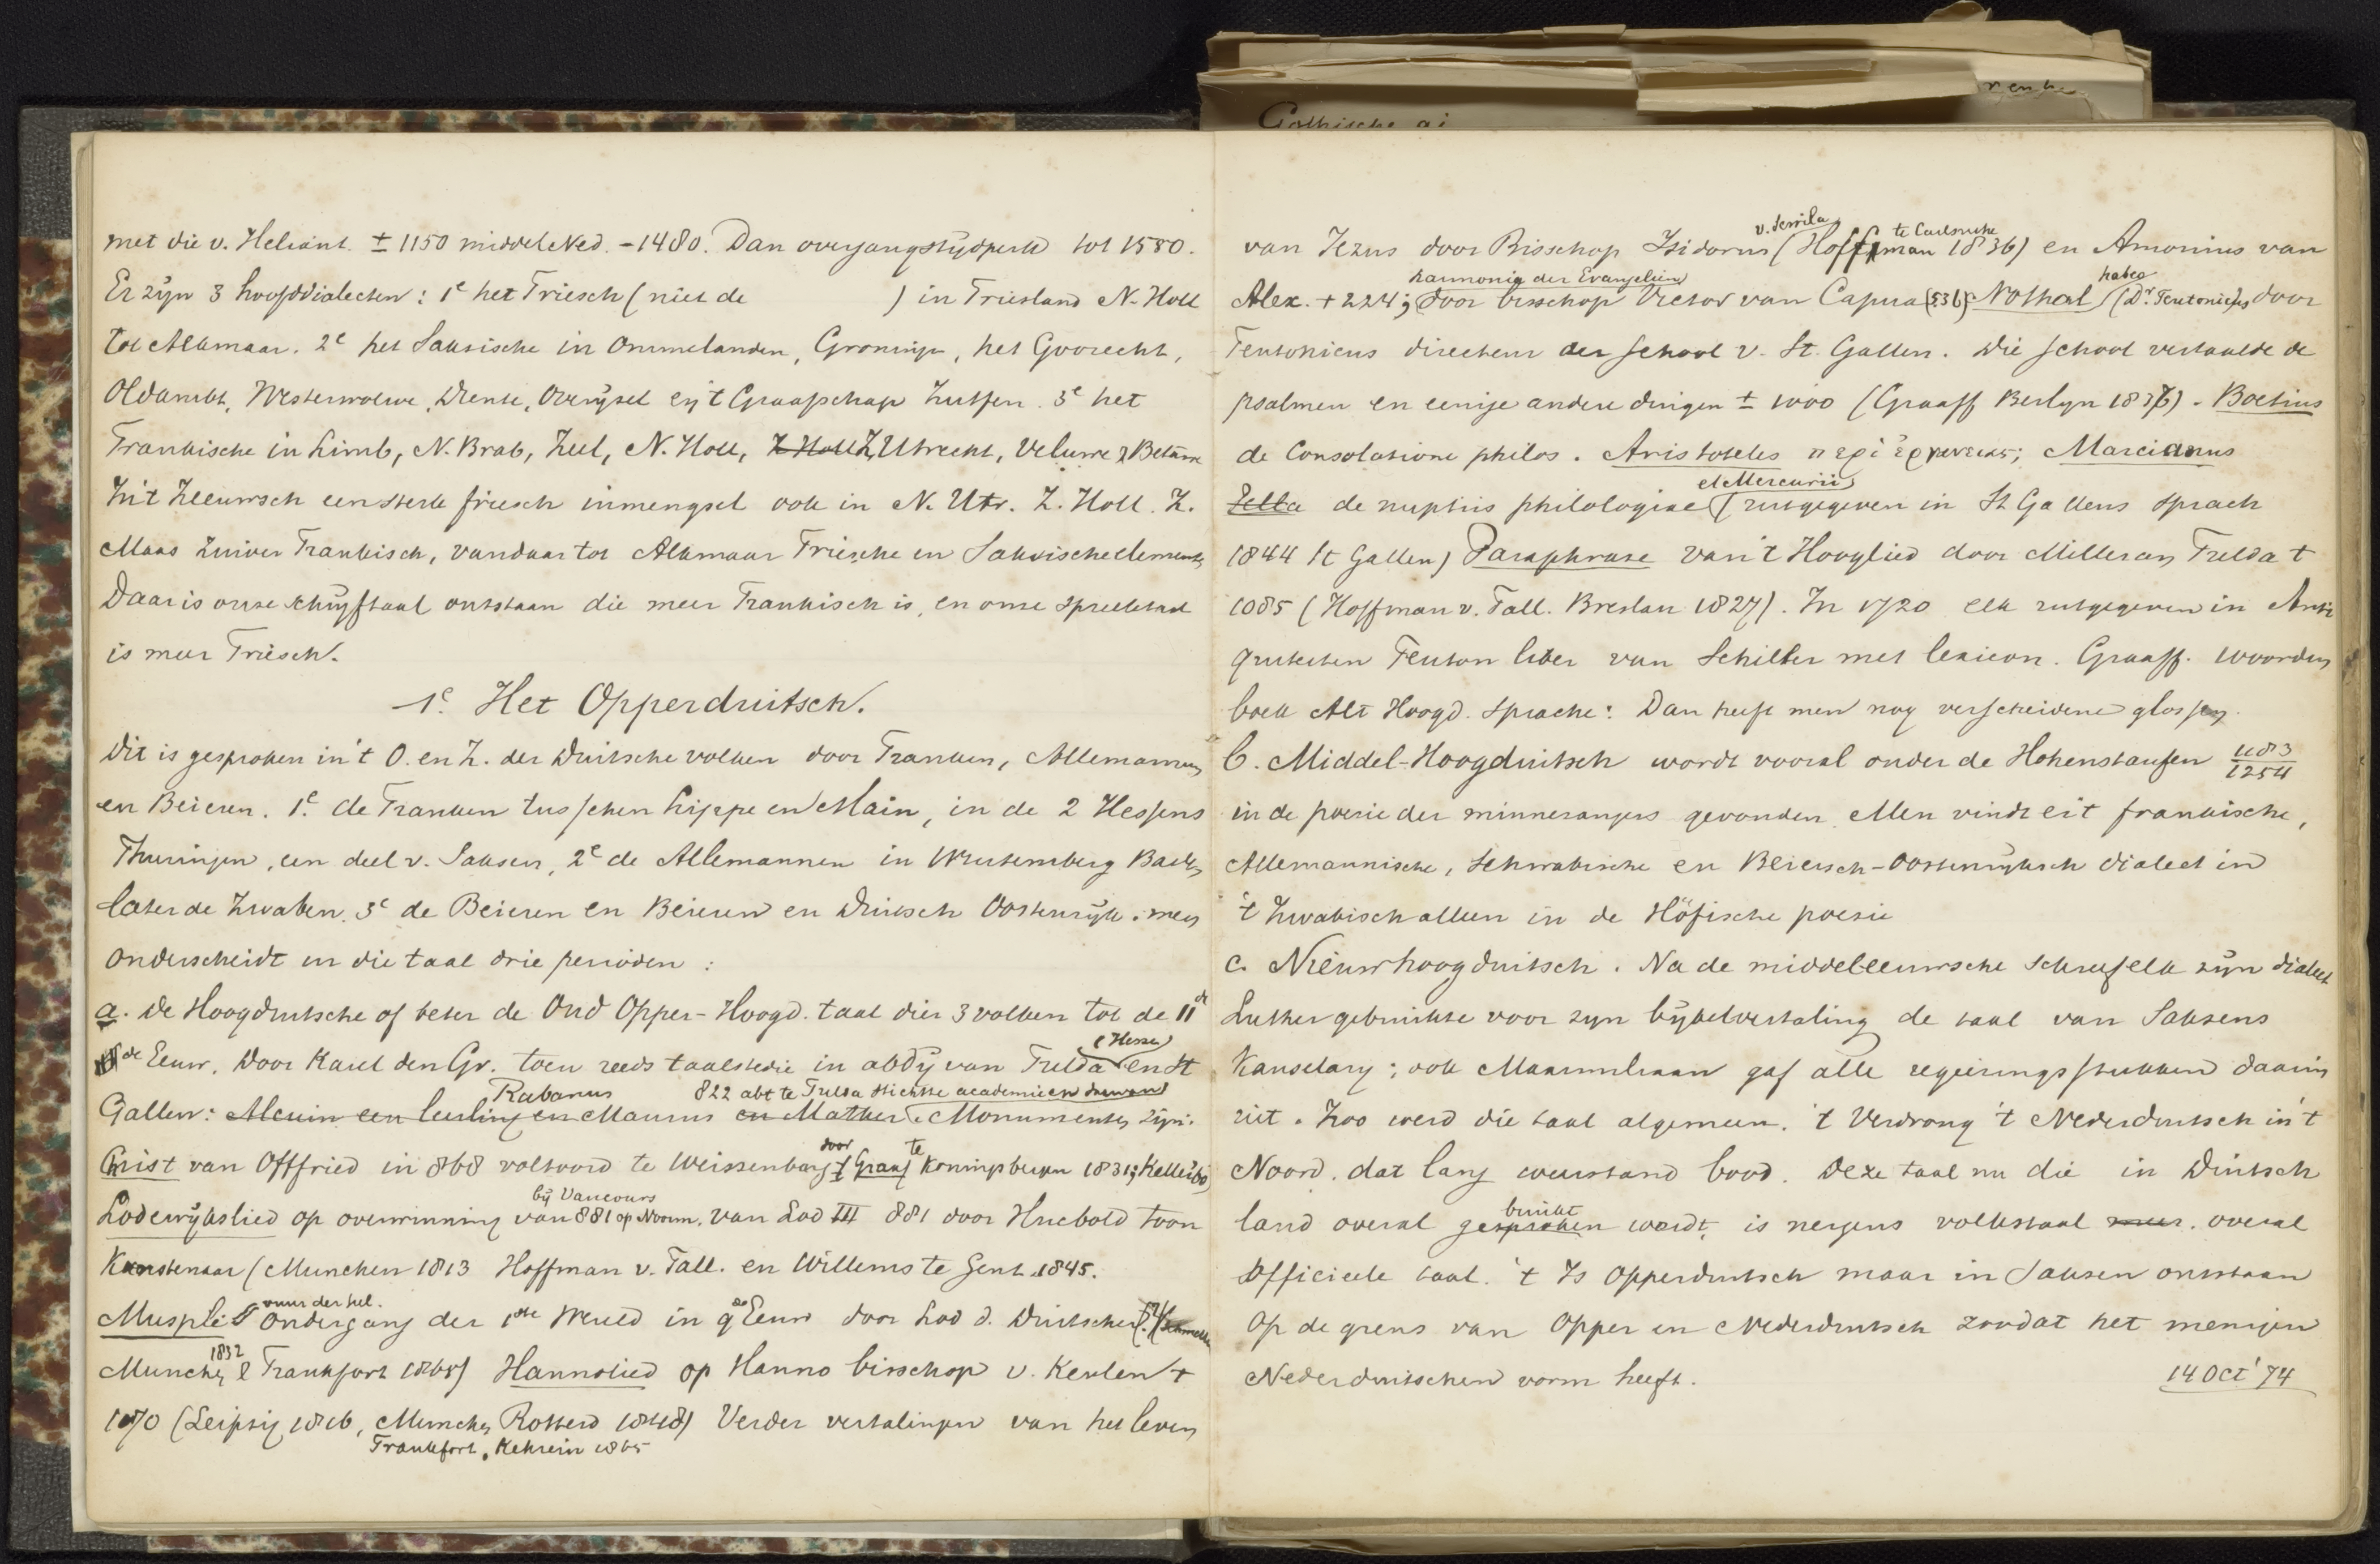 Gothische ai
met die v. Heliant. ± 1150 middel Ned. - 1480. Dan overgangstijdperk tot 1580.
Er zijn 3 hoofddialecten: 1e het Friesch (niet de ) in Friesland N. Holl
tot Alkmaar. 2e het Saksische in Ommelanden, Groningen, het Goorecht,
Oldambt, Westerwolde, Drente, Overijsel en 't Graafschap Zutfen. 3e het
Frankische in Limb, N. Brab, Zeel, N. Holl, Z Holl Z, Utrecht, Veluwe & Betuwe
In 't Zeeuwsch een sterk friesch inmengsel ook in N. Utr. Z. Holl. Z.
Maas zuiver Frankisch, vandaar tot Alkmaar Friesche en Saksische elementen
Daar is onze schrijftaal ontstaan die meer Frankisch is, en onze spreektaal
is meer Friesch.
1e. Het Opperduitsch.
Dit is gesproken in 't O. en Z. der Duitsche volken door Franken, Allemannen
en Beieren. 1e. de Franken tusschen Lippe en Main, in de 2 Hessens
Thuringen, een deel v. Saksen, 2e de Allemannen in Wurtemberg Baden
later de Zwaben. 3e de Beieren en Beieren en Duitsch Oostenrijk: men
onderscheidt in die taal drie perioden:
a. De Hoogduitsche of beter de Oud Opper-Hoogd. taal dier 3 volken tot de 11de
de Eeuw. Door Karel den Gr. toen reeds taalstudie in abdij van Fulda (Hessen) en St
Rabanus 822 abt te Fulda stichtte academie en
Gallen: Alcuin een leerling en Maurus en Mather. Monumenten zijn:
door te
Christ van Offfried in 868 voltooid te Weissenburg Graaf Koningsbergen 1831;
bij Vaucours
Lodewijkslied op overwinning van 881 op Noorm. van Lod III 881 door Hucbold toon
Kunstenaar (Munchen 1813 Hoffman v. Fall. en Willems te Gent 1845.
vuur der hel.
Muspli Ondergang der 1ste Wereld in 9de Eeuw door Lod d. Duitscher
1832
Munchen & Frankfort 1868) Hannolied op Hanno bisschop v. Keulen +
1070 (Leipzig 1816, Munchen Rotterd 1848) Verder vertalingen van het leven
Frankfort, Kehrein 1865
v. Sevilla te Carlsruhe
van Jezus door Bisschop Isidorus (Hoffman 1836) en Amonius van
harmonie der Evangelien habeo
Alex. + 224; door bisschop Victor van Capua (536) Nothal (Dr. Teutonicus door
Teutonicus directeur der school v. St. Gallen. Die school vertaalde de
psalmen en eenige andere dingen ± 1000 (Graaff Berlyn 1837) - Boetius
de Consolatione philos. Aristoteles περὶ ἑρμενειας; Marcianus
et Mercurii
Zella de nuptiis philologiae (uitgegeven in St Gallens sprach
1844 St Gallen) Paraphrase van 't Hooglied door Milleran Fulda +
1085 (Hoffman v. Fall. Breslau 1827). In 1720 elk uitgegeven in Anti
quiteiten Teuton liber van Schilter met lexicon. Graaff. woorden
boek Alt Hoogd. Sprache: Dan heeft men nog verscheidene glossen.
b. Middel-Hoogduitsch wordt vooral onder de Hohenstaufen 1183/1254
in de poesie der minnezangers gevonden. Men vindt er 't frankische,
Allemannische, Schwabische en Beiersch-Oostenrijksch dialect in
't Zwabisch alleen in de Höfische poesie
c. Nieuwhoogduitsch. Na de middeleeuwsche schreef elk zijn dialect
Luther gebruikte voor zyn bijbelvertaling de taal van Saksens
Kanselary; ook Maximiliaan gaf alle regeeringsstukken daarin
uit. Zoo werd die taal algemeen. 't Verdrong 't Nederduitsch in 't
Noord. dat lang weerstand bood. Deze taal nu die in Duitsch
bruikt
land overal gesproken wordt, is nergens volkstaal meer. overal
Officieele taal. 't Is Opperduitsch maar in Saksen ontstaan
Op de grens van Opper en Nederduitsch zoodat het menigen
Nederduitschen vorm heeft. 14 Oct '74